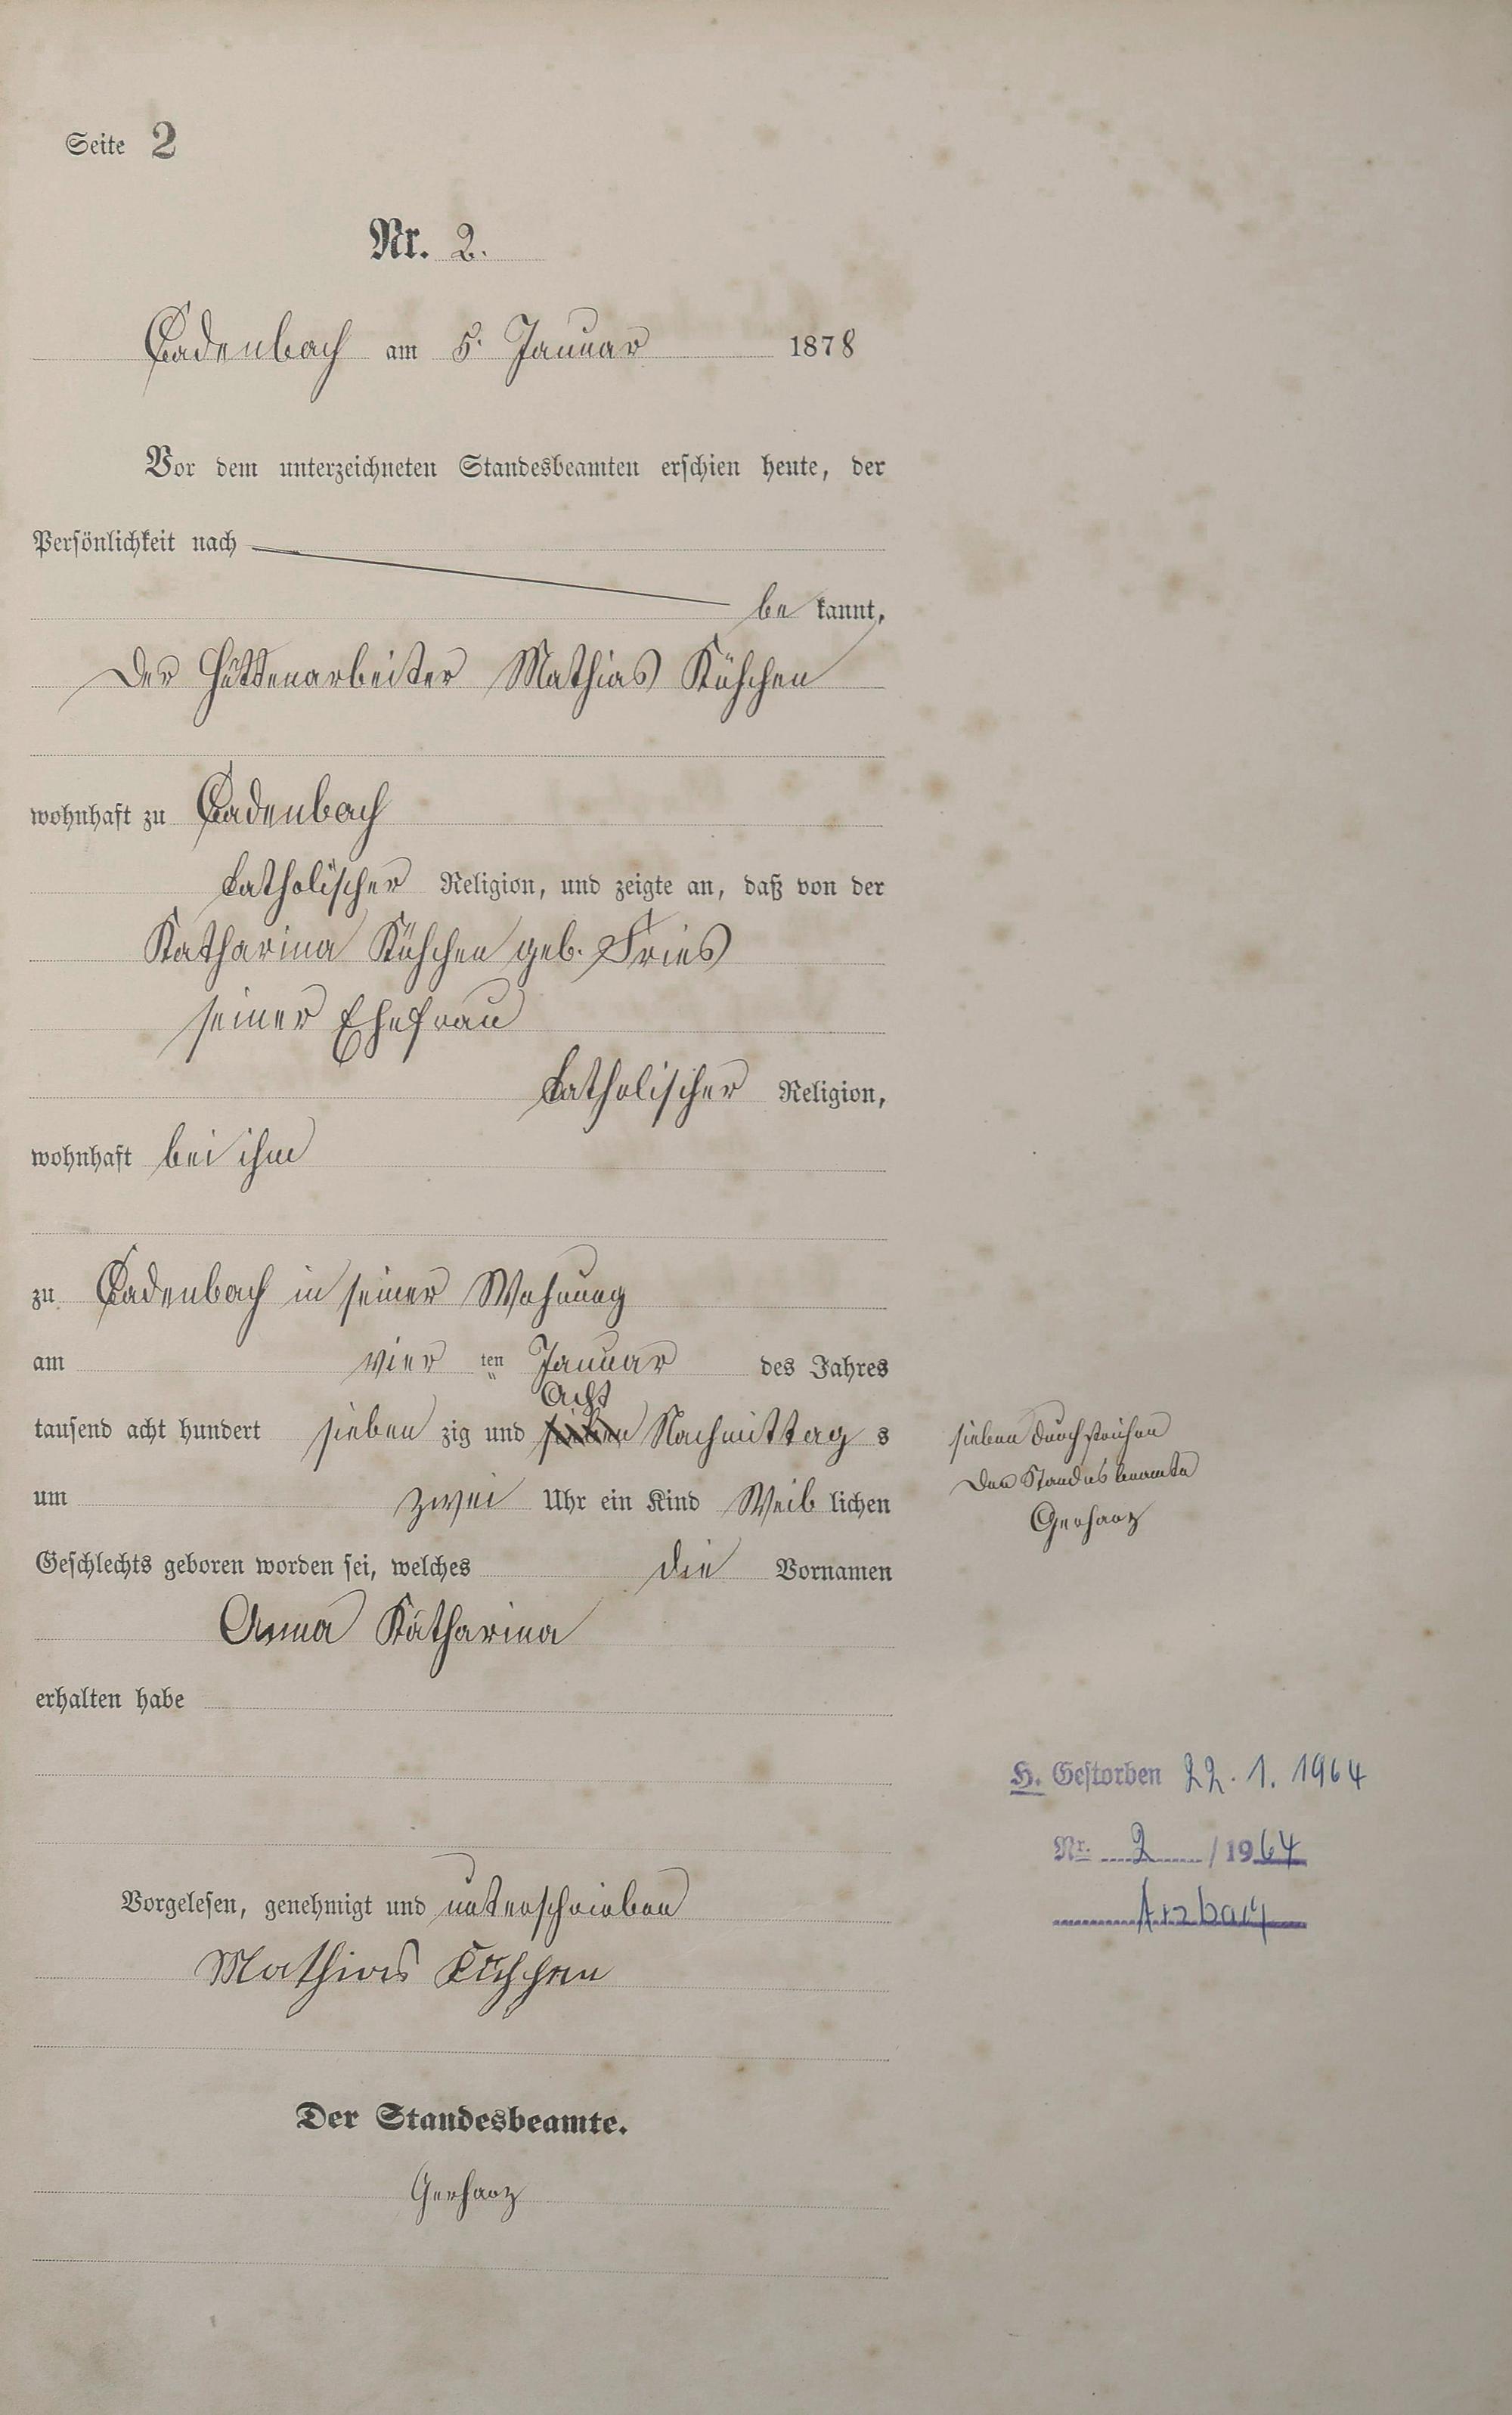 Seite 2
Nr. 2.
Cadenbach am 5. Januar 1878
Vor dem unterzeichneten Standesbeamten erschien heute, der
Persönlichkeit nach
be kannt,
Der Hüttenarbeiter Mathias Küschen
wohnhaft zu Cadenbach
katholischer Religion, und zeigte an, daß von der
Katharina Küschen geb. Fries
seiner Ehefrau
katholischer Religion,
wohnhaft bei ihm
zu Cadenbach in seiner Wohnung
am vier ten Januar des Jahres
Acht
tausend acht hundert sieben zig und sieben Nachmittag s
um zwei Uhr ein Kind Weib lichen
Geschlechts geboren worden sei, welches die Vornamen
Anna Katharina
erhalten habe
Vorgelesen, genehmigt und unterschrieben
Mathias Küschen
Der Standesbeamte.
Gerharz
sieben durchstrichen
Der Standesbeamte
Gerharz
H. Gestorben 22. 1. 1964
Nr. 2 / 1964
Arzbach